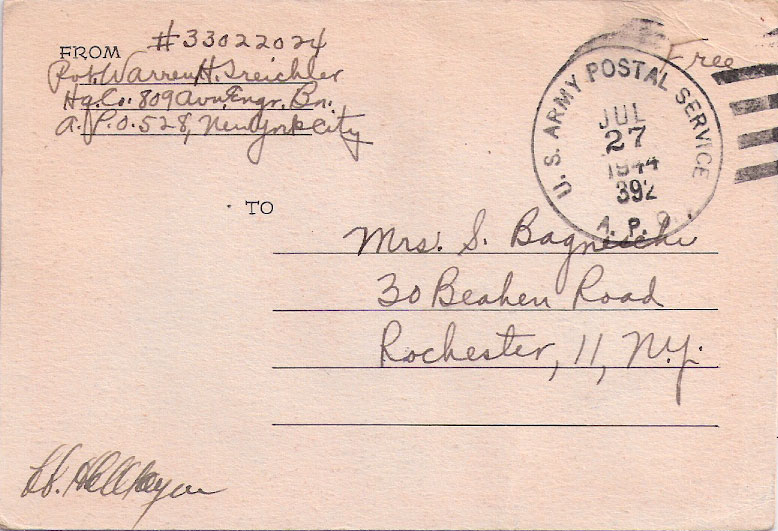 FROM #33022024
Pvt. Warren H. Treichler
Hq. Co. 809 Avn. Engr. Bn.
A.P.O. 528, New York City
Free
U.S. ARMY POSTAL SERVICE
JUL
27
1944
392
A.P.O.
TO
Mrs. S.
30 Beahen Road
Rochester, 11, N.Y.